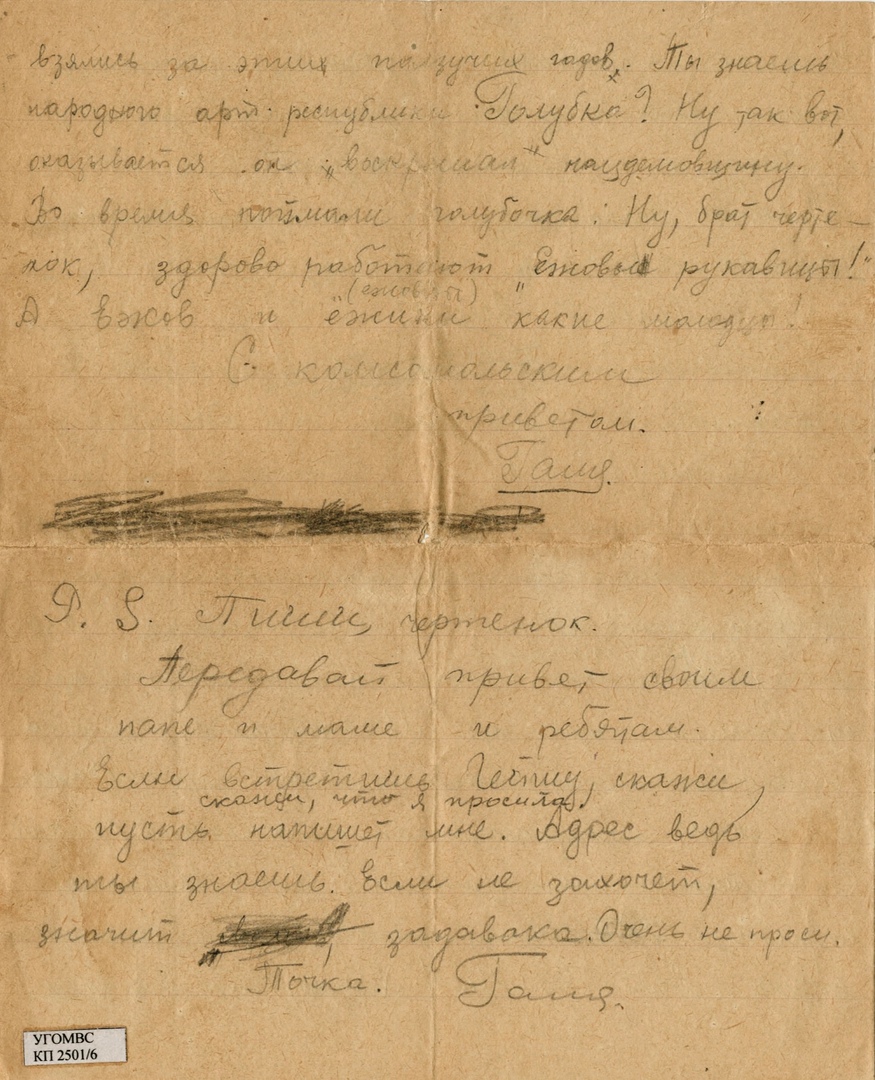 взялись за этих ползучих гадов. Ты знаешь
народного арт. республики Голубка? Ну так вот,
оказывается он „воскрешал" нацдемовщину.
Во время поймали голубочка. Ну, брат черте-
нок, здорово работают "Ежовые рукавицы!"
(ежовцы)
А Ежов и "ежики" какие молодцы!
С комсомольским
приветом.
Галя.
P. S. Пиши, чертенок.
Передавай привет своим
папе и маме и ребятам.
Если встретишь, скажи,
скажи, что я просила.
пусть напишет мне. Адрес ведь
ты знаешь. Если не захочет,
значит задавака. Очень не проси.
Точка. Галя.
УГОМВС
КП 2501/6